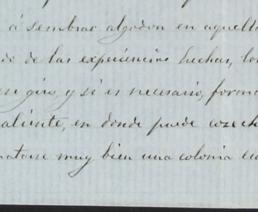 á sembrar algodon en aquell
de las experiencias hechas, lo
giro, y si es necesario, forma
caliente, en donde puede cosech
muy bien una colonia